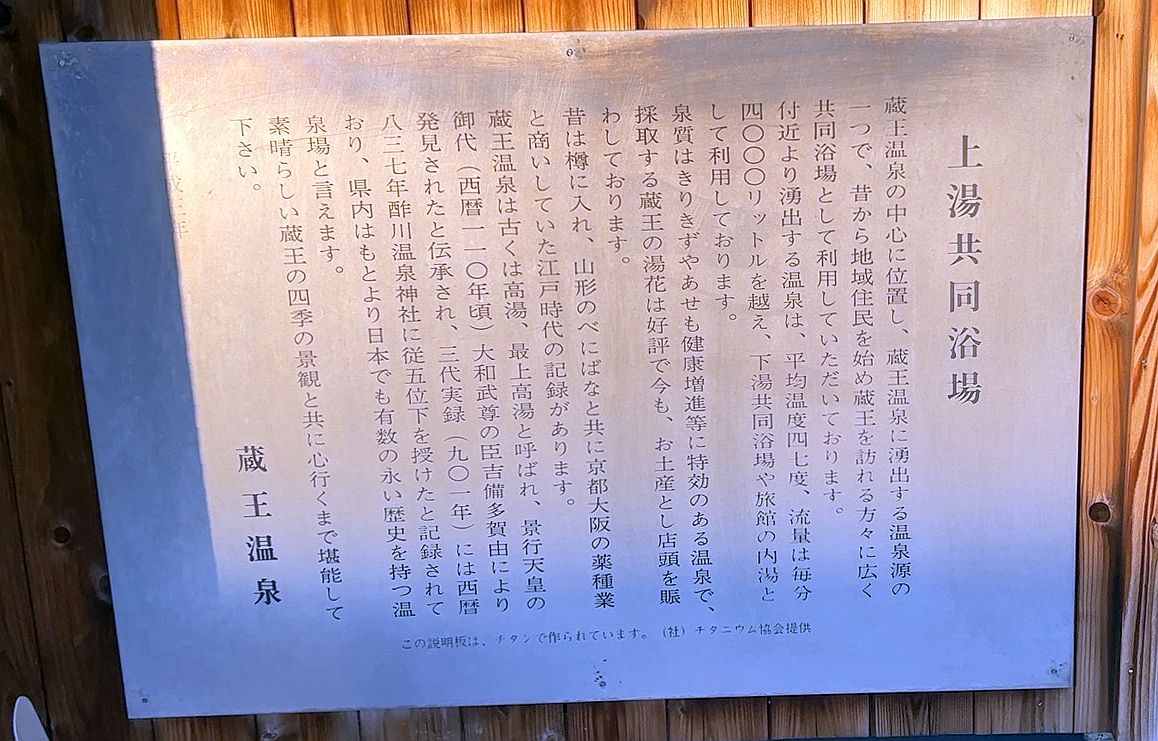 上湯共同浴場
蔵王温泉の中心に位置し、蔵王温泉に湧出する温泉源の
一つで、昔から地域住民を始め蔵王を訪れる方々に広く
共同浴場として利用していただいております。
付近より湧出する温泉は、平均温度四七度、流量は毎分
四〇〇〇リットルを越え、下湯共同浴場や旅館の内湯と
して利用しております。
泉質はきりきずやあせも健康増進等に特効のある温泉で、
採取する蔵王の湯花は好評で今も、お土産とし店頭を賑
わしております。
昔は樽に入れ、山形のべにばなと共に京都大阪の薬種業
と商いしていた江戸時代の記録があります。
蔵王温泉は古くは高湯、最上高湯と呼ばれ、景行天皇の
御代（西暦一一〇年頃）大和武尊の臣吉備多賀由により
発見されたと伝承され、三代実録（九〇一年）には西暦
八三七年酢川温泉神社に従五位下を授けたと記録されて
おり、県内はもとより日本でも有数の永い歴史を持つ温
泉場と言えます。
素晴らしい蔵王の四季の景観と共に心行くまで堪能して
下さい。
蔵王温泉
この説明板は、チタンで作られています。（社）チタニウム協会提供